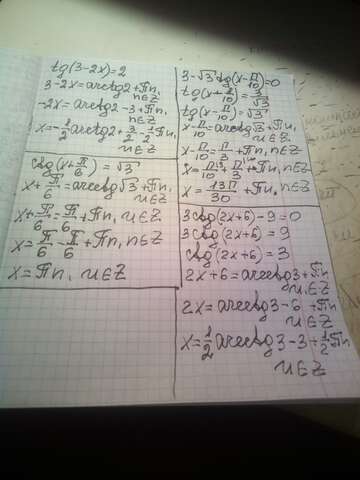 tg(3-2x)=2
3-2x=arctg2+Пn,
n∈Z
-2x=arctg2-3+Пn,
n∈Z
x=-1/2 arctg2+3/2-1/2Пn,
n∈Z
ctg(x+П/6)=√3
x+П/6=arcctg√3+Пn,
n∈Z
x+П/6=П/6+Пn, n∈Z
x=П/6-П/6+Пn, n∈Z
x=Пn, n∈Z
3-√3 tg(x-П/10)=0
tg(x+П/10)=3/√3
tg(x-П/10)=√3
x-П/10=arctg√3+Пn,
n∈Z
x-П/10=П/3+Пn, n∈Z
x=П/10+П/3+Пn, n∈Z
x=13П/30+Пn, n∈Z
3ctg(2x+6)-9=0
3ctg(2x+6)=9
ctg(2x+6)=3
2x+6=arcctg3+Пn
n∈Z
2x=arcctg3-6+Пn
n∈Z
x=1/2 arcctg3-3+1/2Пn
n∈Z